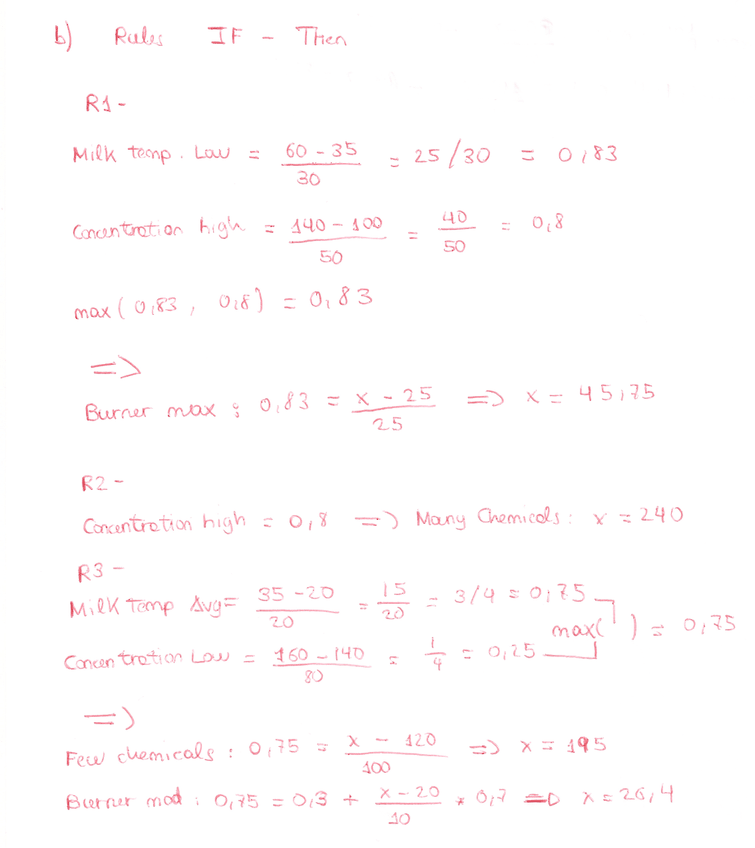 b) Rules IF - Then
R1 -
Milk temp. Low = 60 - 35 / 30 = 25/30 = 0,83
Concentration high = 140 - 100 / 50 = 40 / 50 = 0,8
max ( 0,83 , 0,8 ) = 0,83
=>
Burner max : 0,83 = x - 25 / 25 => x = 45,75
R2 -
Concentration high = 0,8 => Many Chemicals : x = 240
R3 -
Milk Temp Avg = 35 - 20 / 20 = 15 / 20 = 3/4 = 0,75
max( ) = 0,75
Concentration Low = 160 - 140 / 80 = 1 / 4 = 0,25
=>
Few chemicals : 0,75 = x - 120 / 100 => x = 195
Burner mod : 0,75 = 0,3 + x - 20 / 10 * 0,7 => x = 26,4